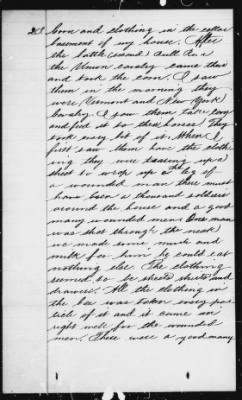 Corn and clothing in the cellar
basement of my house. After
the battle (second) Bull Run
the Union cavalry came there
and took the corn. I saw
them in the morning they
were Vermont and New York
Cavalry. I saw them take corn
and feed it to their horses. They
took every bit of it. When I
first saw them have the cloth-
ing they were tearing up a
sheet to wrap up a leg of
a wounded man there must
have been a thousand soldiers
around the house and a good
many wounded men. One man
was shot through the neck
we made some mush and
milk for him he could eat
nothing else. The clothing
seemed to be sheets shirts and
drawers. All the clothing in
the box was taken every par-
ticle of it and it came in
right well for the wounded
men. There were a good many